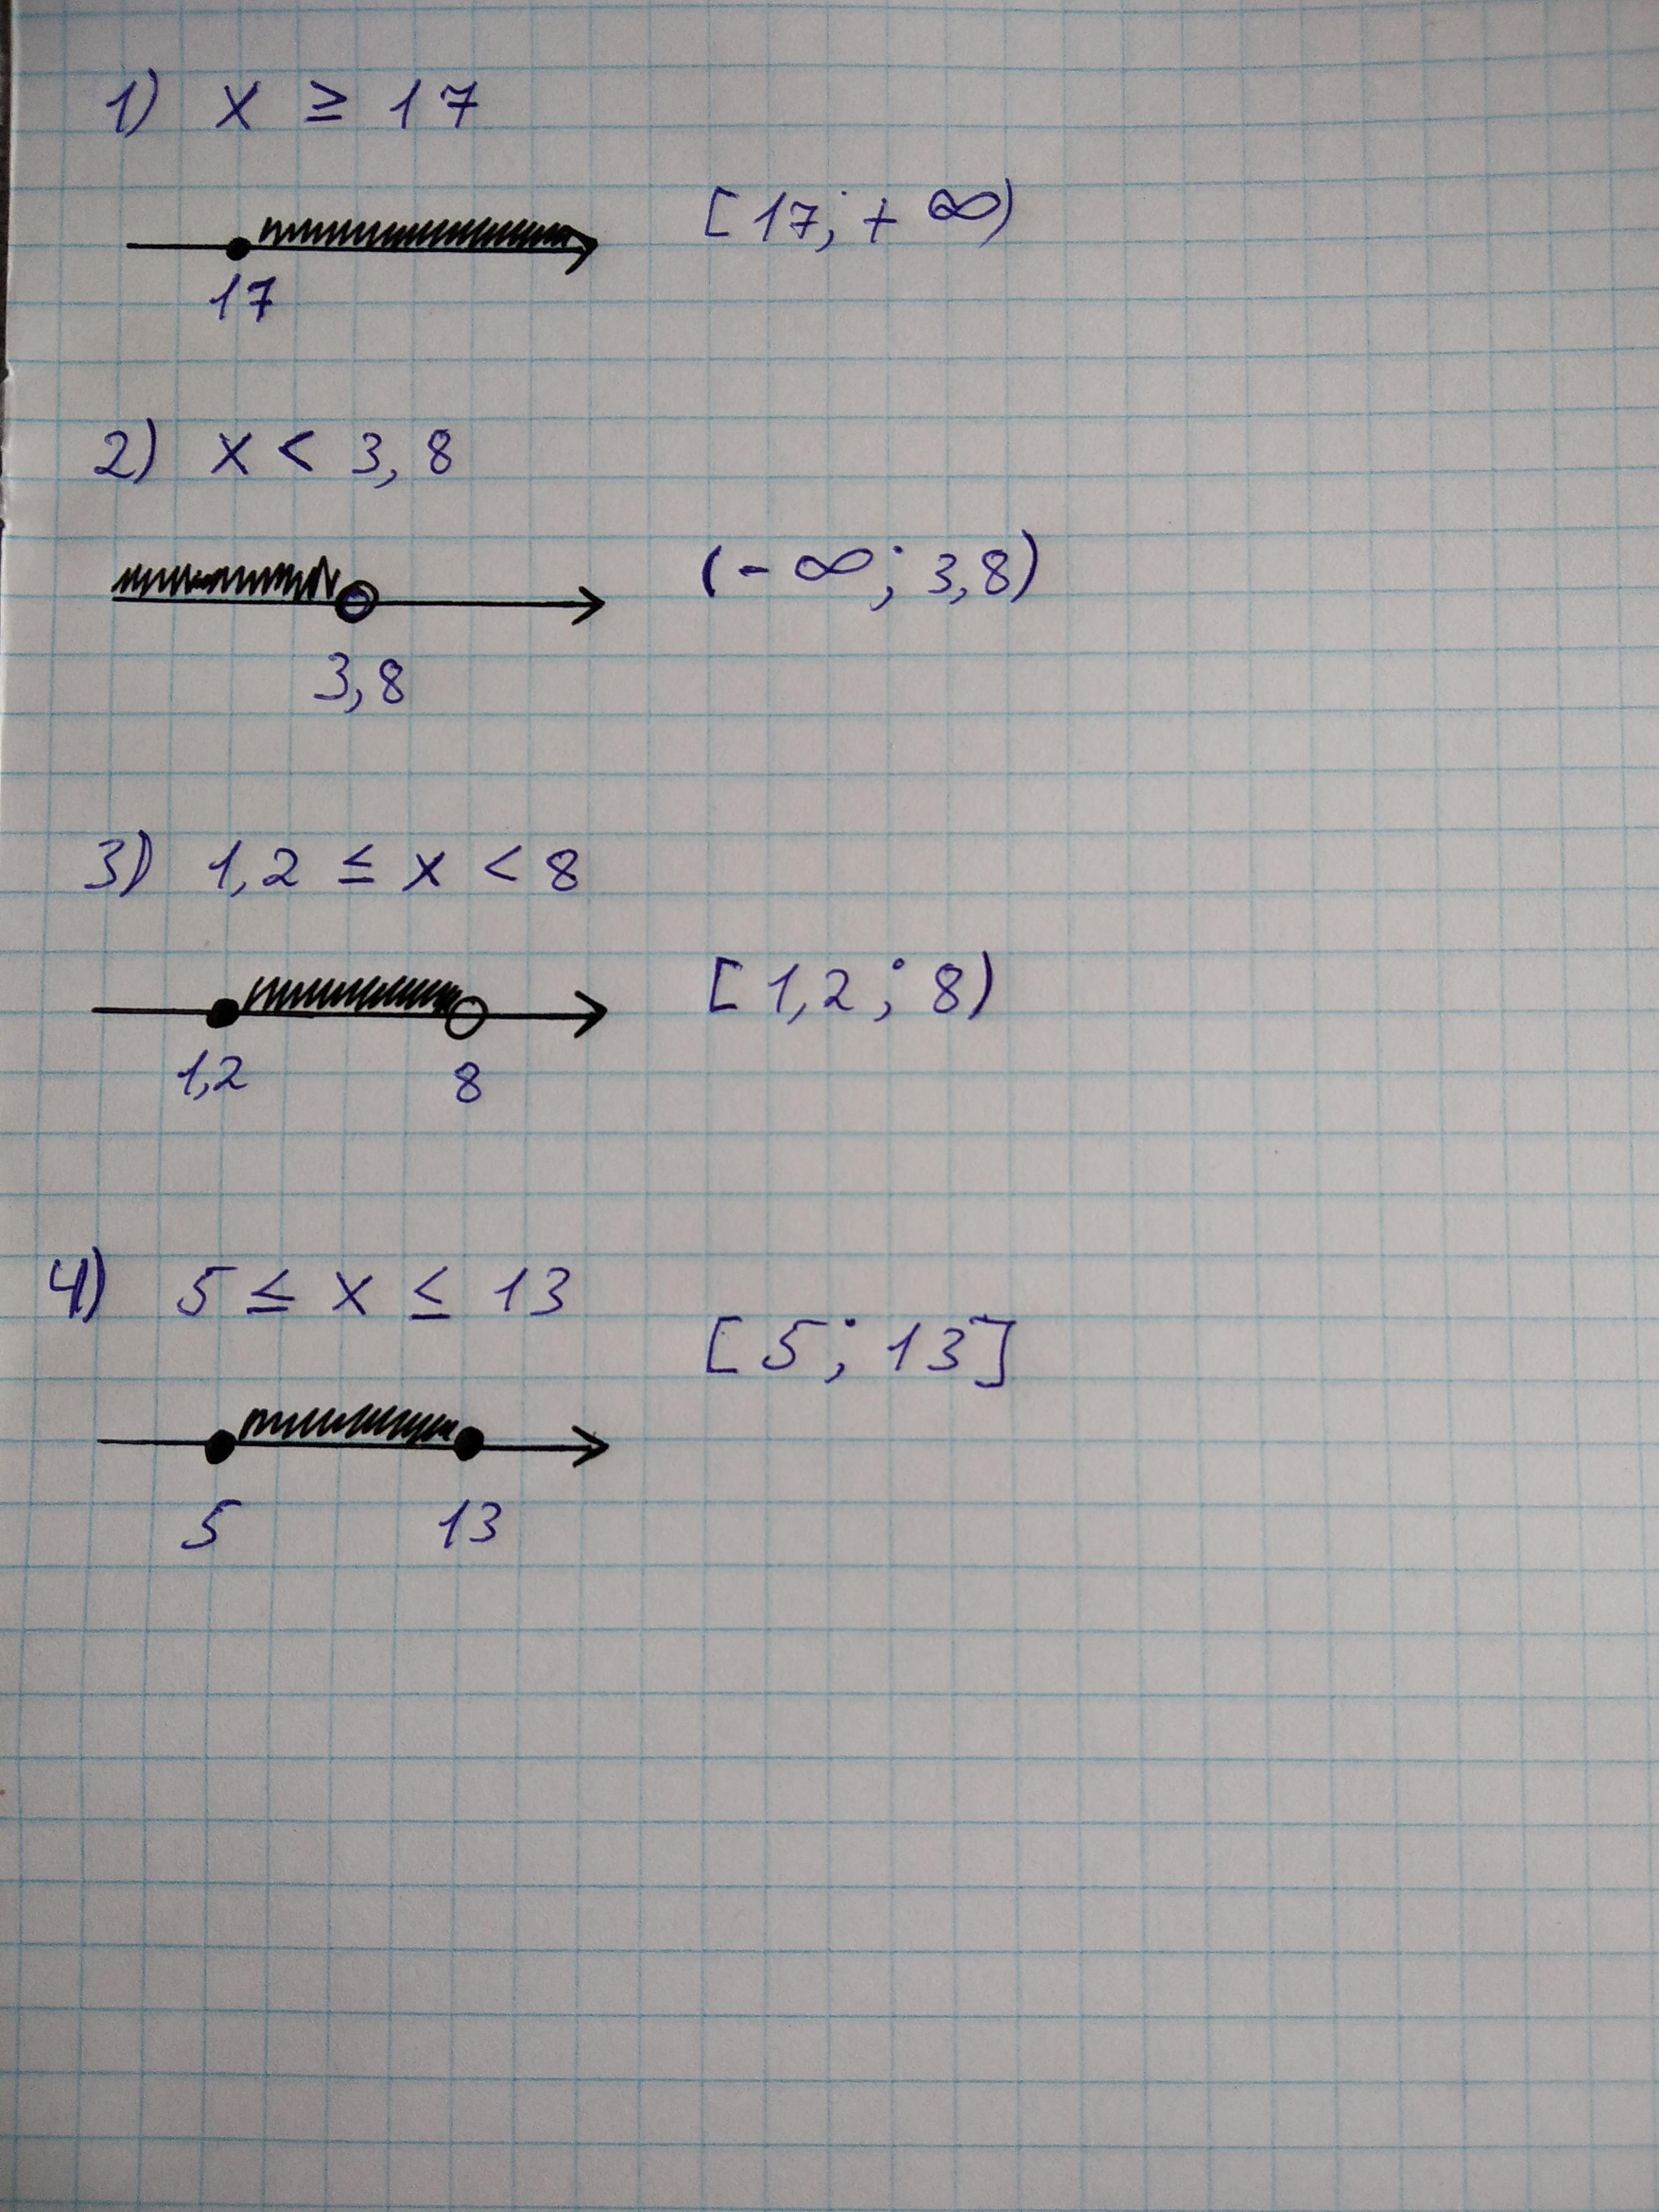 1) x ≥ 17
[17; + ∞)
17
2) x < 3,8
(- ∞; 3,8)
3,8
3) 1,2 ≤ x < 8
[1,2; 8)
1,2 8
4) 5 ≤ x ≤ 13
[5; 13]
5 13